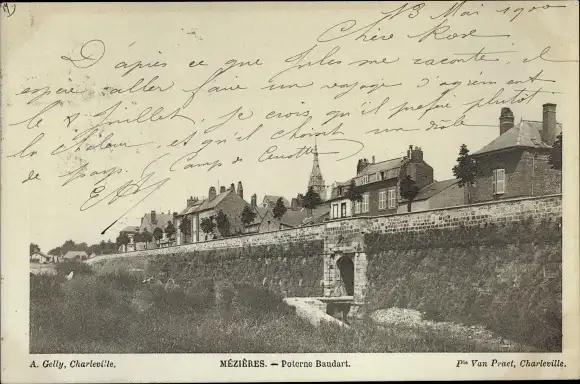 13 Mai 1900
Chère Rose
D'après ce que Jules me raconte, il
espère aller faire un voyage d'agrément
le 8 Juillet. Je crois qu'il préfère plutôt
la chaleur, et qu'il choisit un drôle
de pays. Camp de
A. Gelly, Charleville.
MÉZIÈRES. — Poterne Baudart.
Pte Van Praet, Charleville.